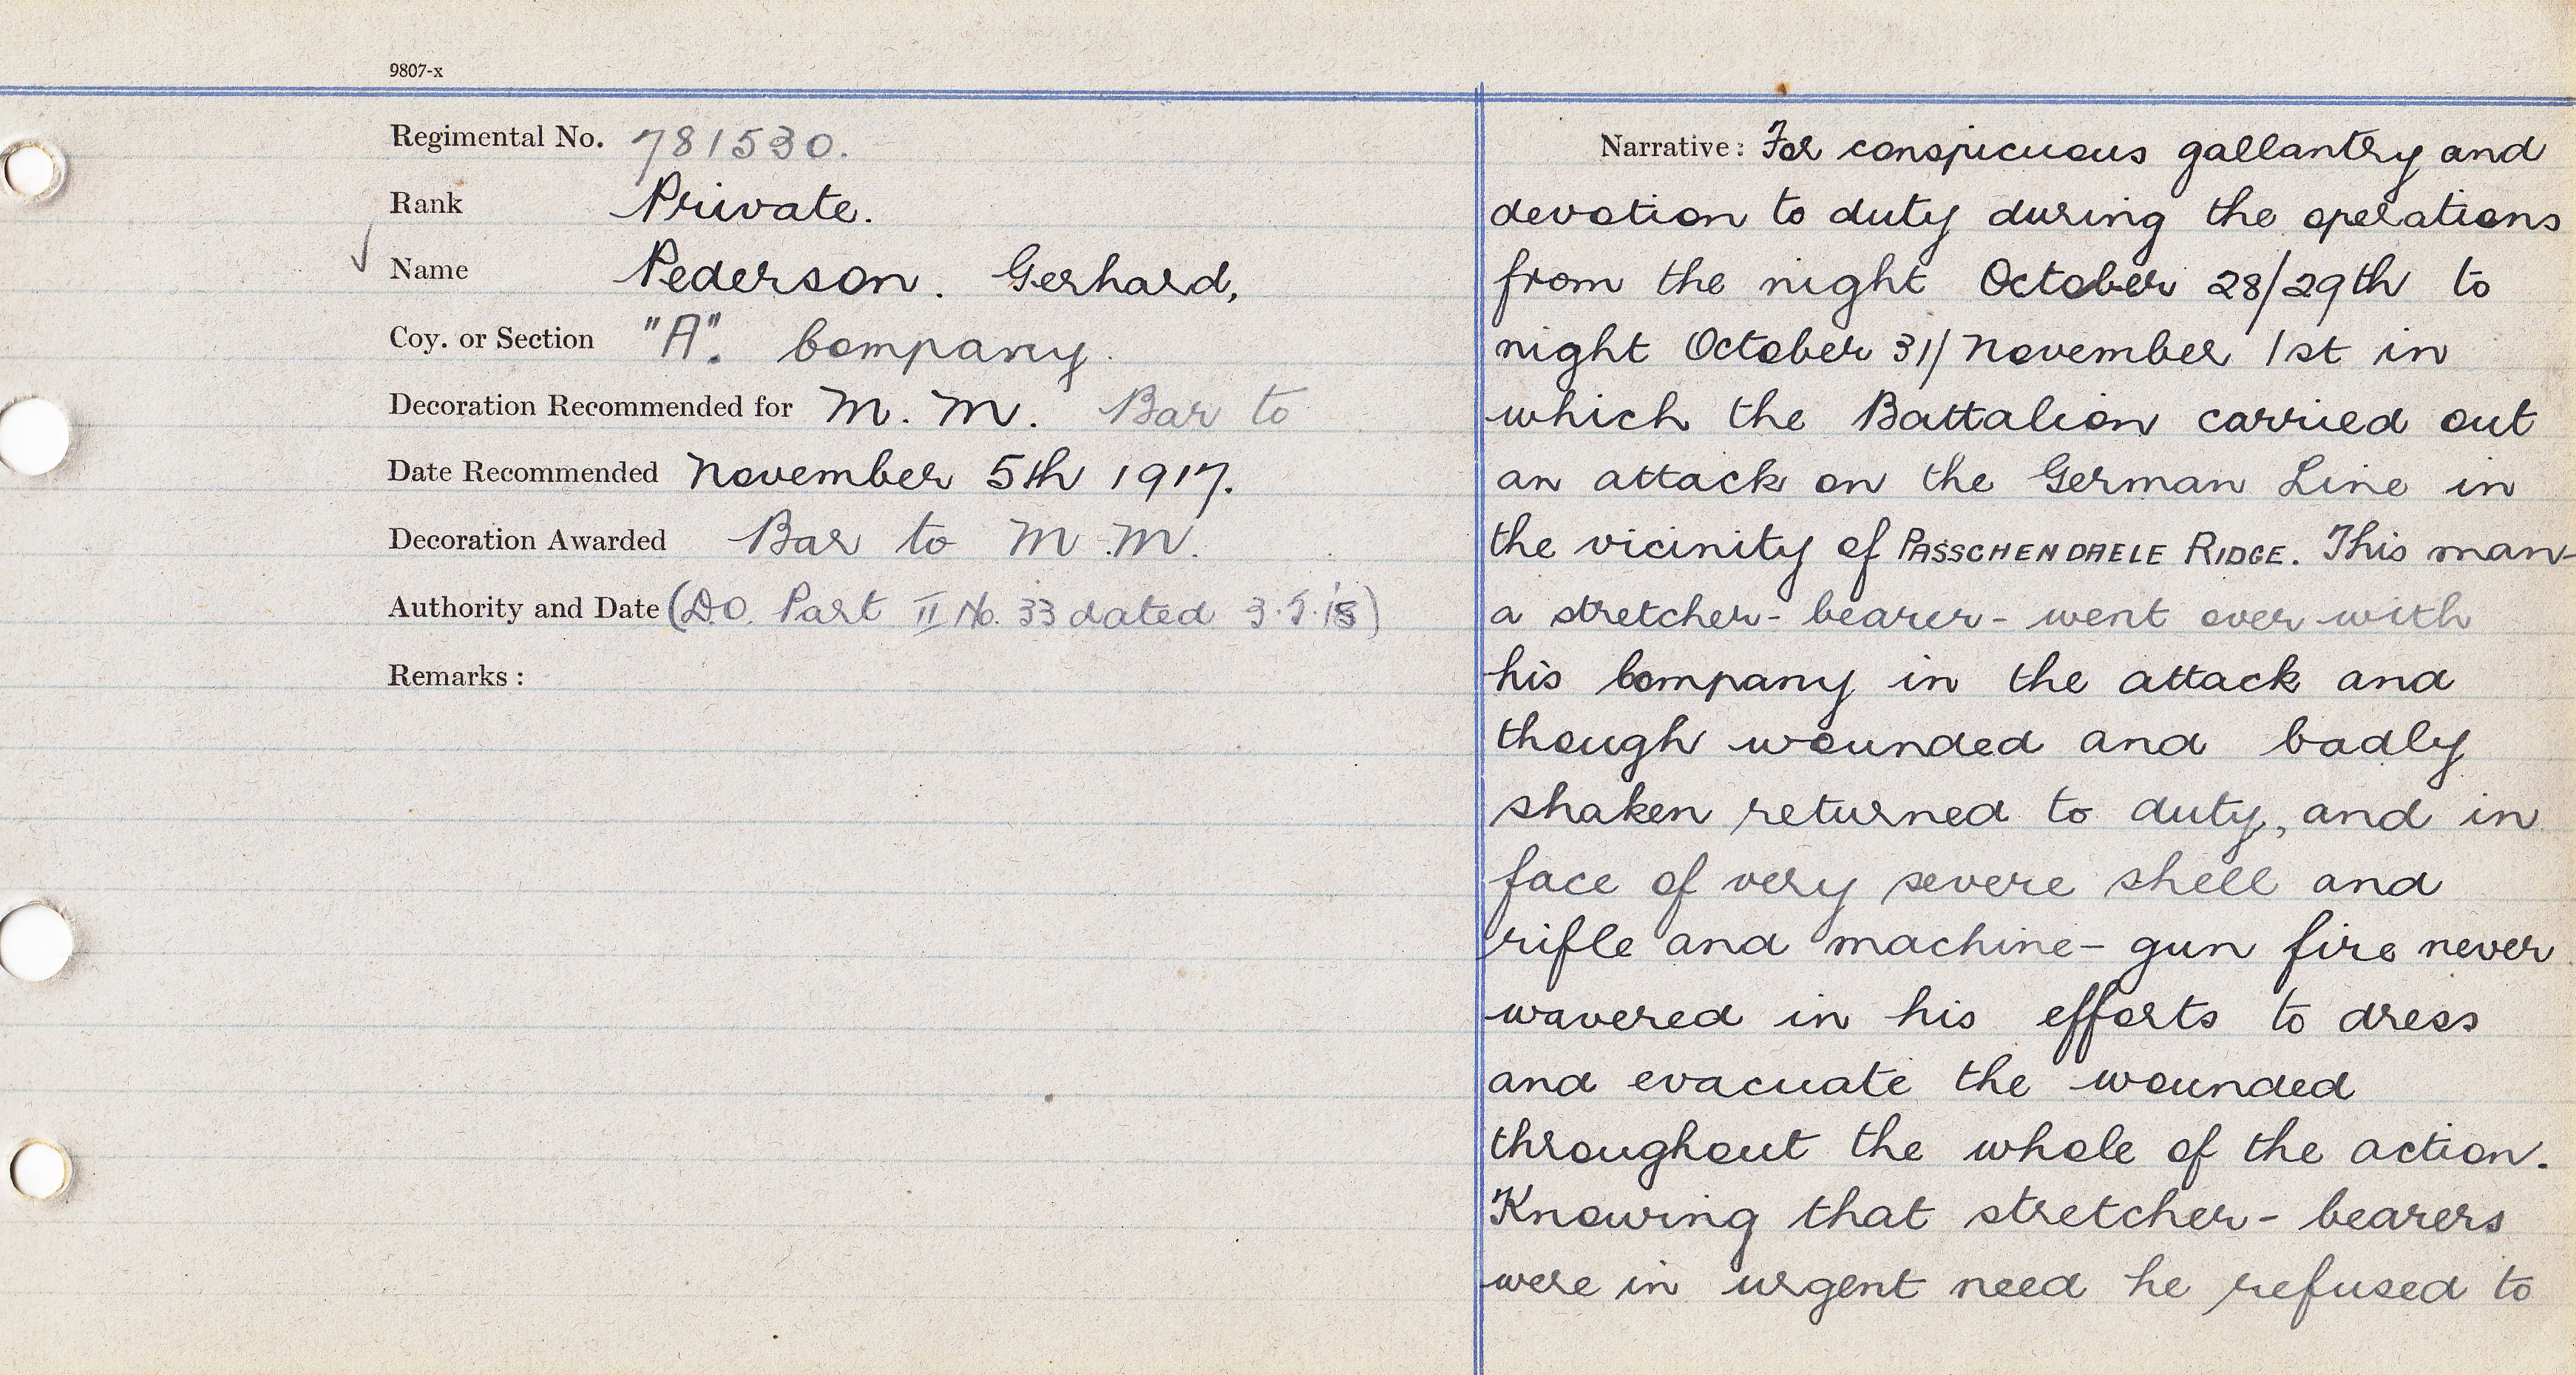 9807-x
Regimental No. 781530.
Rank Private.
Name Pederson. Gerhard,
Coy. or Section "A". Company.
Decoration Recommended for M. M. Bar to
Date Recommended November 5th 1917.
Decoration Awarded Bar to M.M.
Authority and Date (D.O. Part II No. 33 dated 3.5.18)
Remarks :
Narrative : For conspicuous gallantry and
devotion to duty during the operations
from the night October 28/29th to
night October 31/November 1st in
which the Battalion carried out
an attack on the German Line in
the vicinity of PASSCHENDAELE RIDGE. This man-
a stretcher-bearer- went over with
his Company in the attack and
though wounded and badly
shaken returned to duty, and in
face of very severe shell and
rifle and machine-gun fire never
wavered in his efforts to dress
and evacuate the wounded
throughout the whole of the action.
Knowing that stretcher-bearers
were in urgent need he refused to